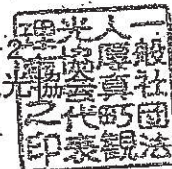 一般社團法
人厚真町観
光協会代表
理事之印
光協